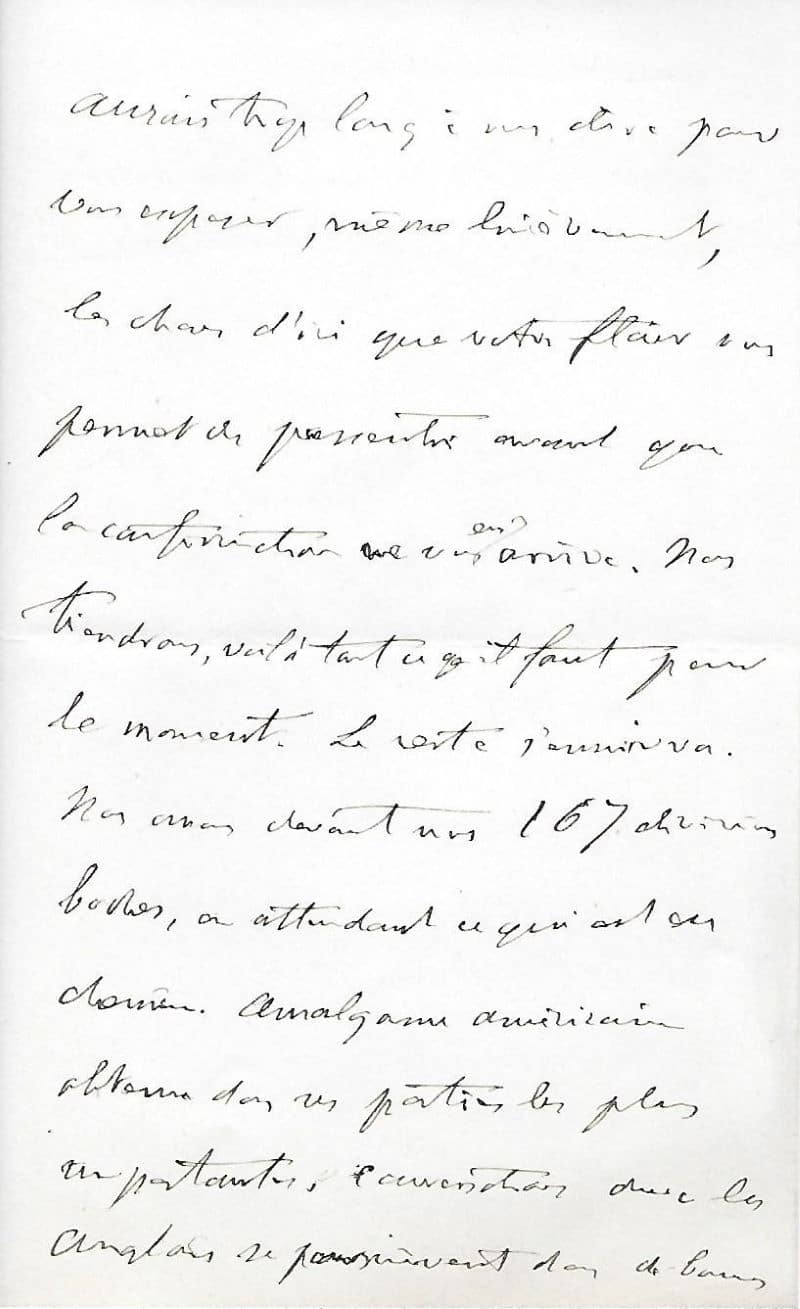 aurais trop long à vous dire pour
vous exposer, même brièvement,
les choses d'ici que votre flair vous
permet de pressentir avant que
la confirmation ne vous en arrive. Nous
tiendrons, voilà tout ce qu'il faut pour
le moment. Le reste s'ensuivra.
Nous avons devant nous 167 divisions
boches, en attendant ce qui est en
chemin. Amalgame américain
obtenu dans ses parties les plus
importantes. Conversations avec les
anglais se poursuivent dans de bonnes